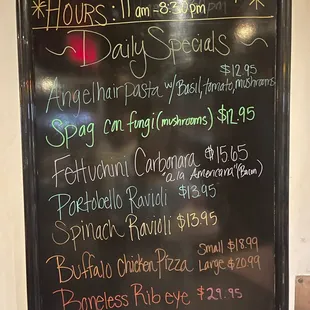 HOURS: 11 am - 8:30pm
Daily Specials
$12.95
Angelhair pasta w/ Basil, tomato, mushrooms
Spag con fungi (mushrooms) $12.95
Fettuchini Carbonara $15.65
"a la Americana" (Bacon)
Portobello Ravioli $13.95
Spinach Ravioli $13.95
Small $18.99
Buffalo Chicken Pizza Large $20.99
Boneless Rib eye $29.95